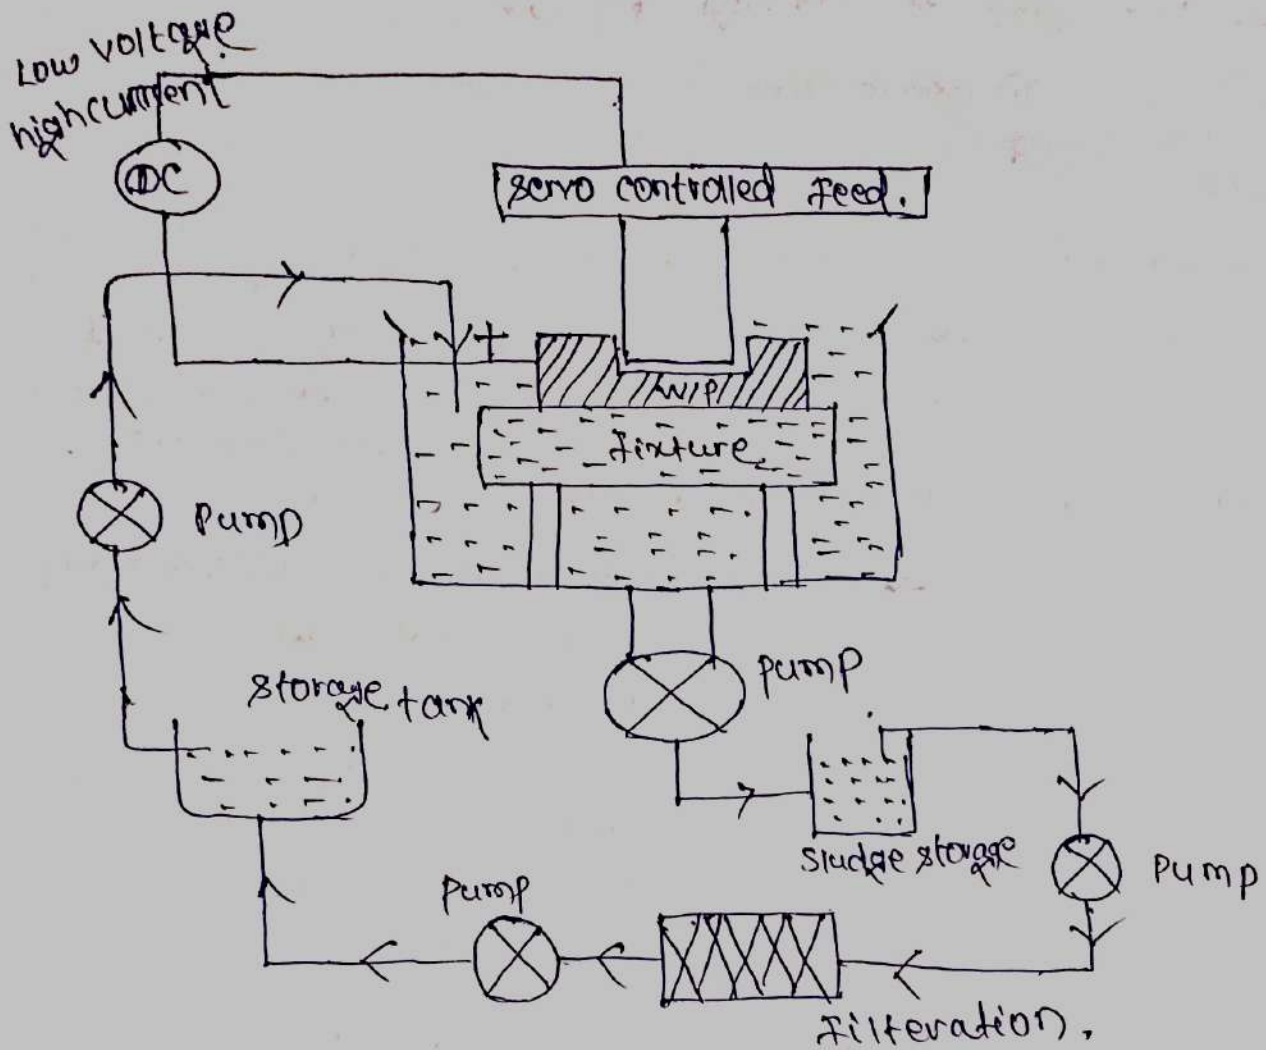 Low voltage
high current
DC
servo controlled feed.
+
W/P
fixture
Pump
Pump
storage tank
sludge storage
Pump
Pump
Filteration.